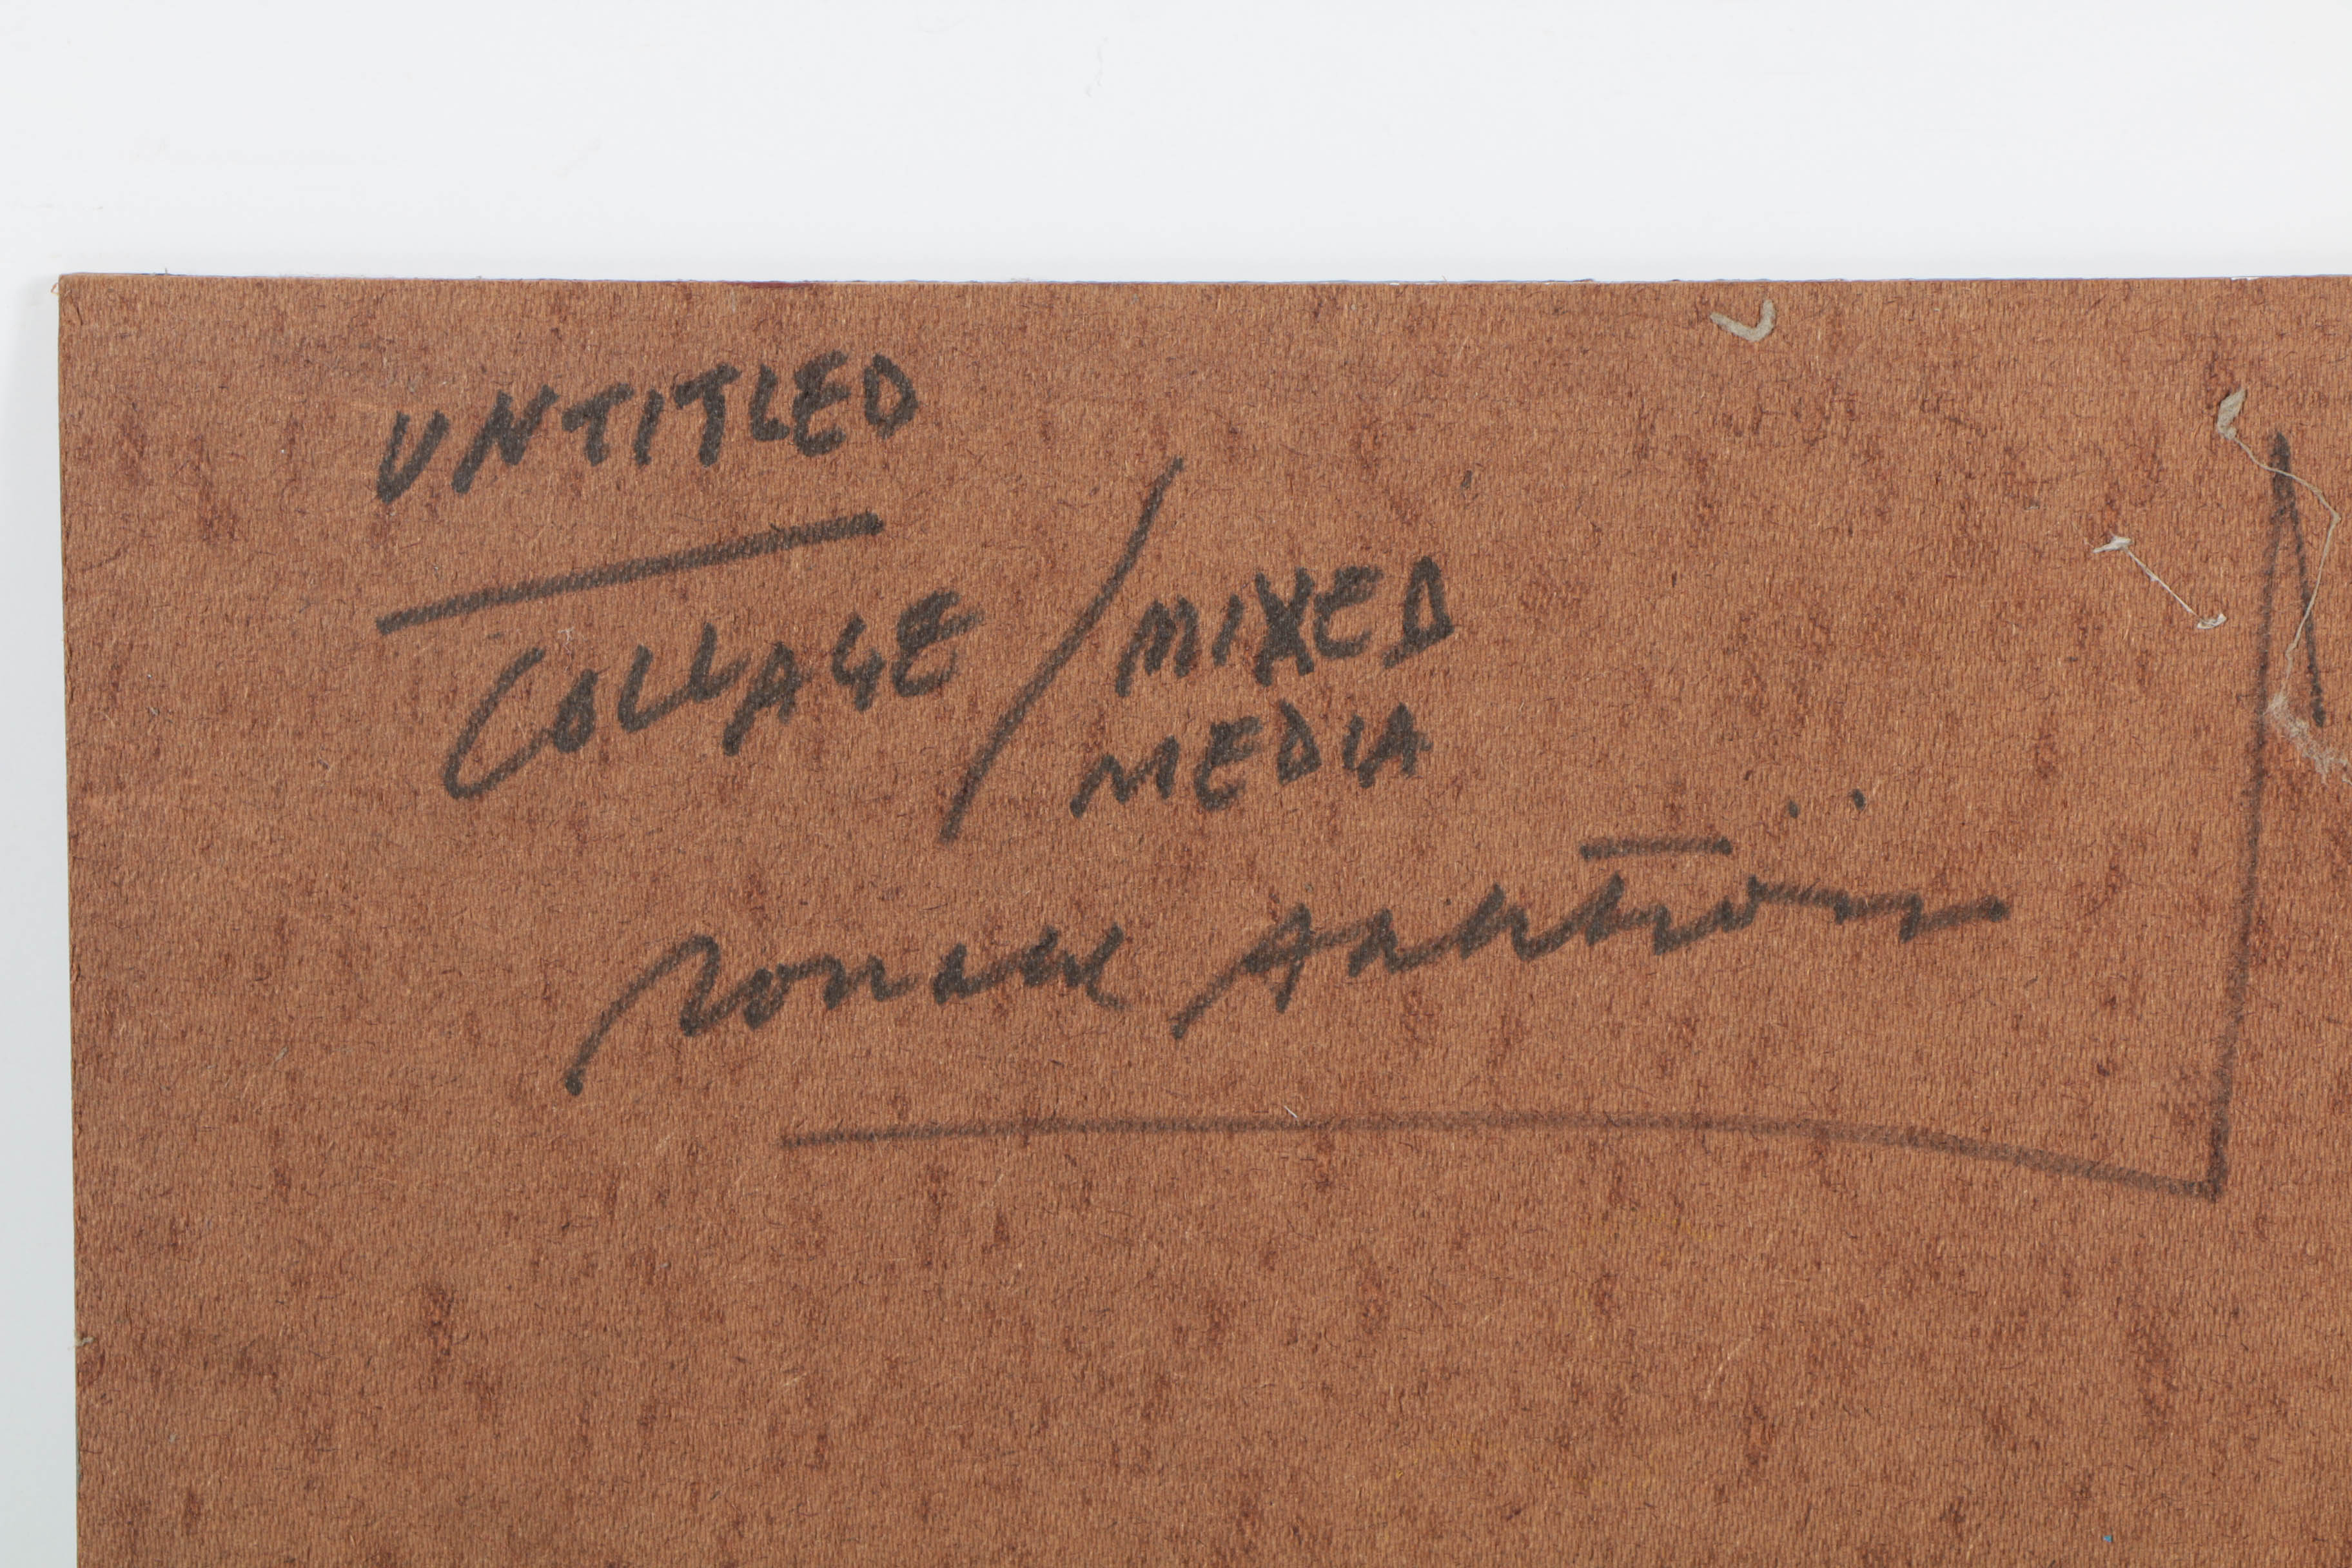 UNTITLED
COLLAGE / MIXED
MEDIA
Ronald